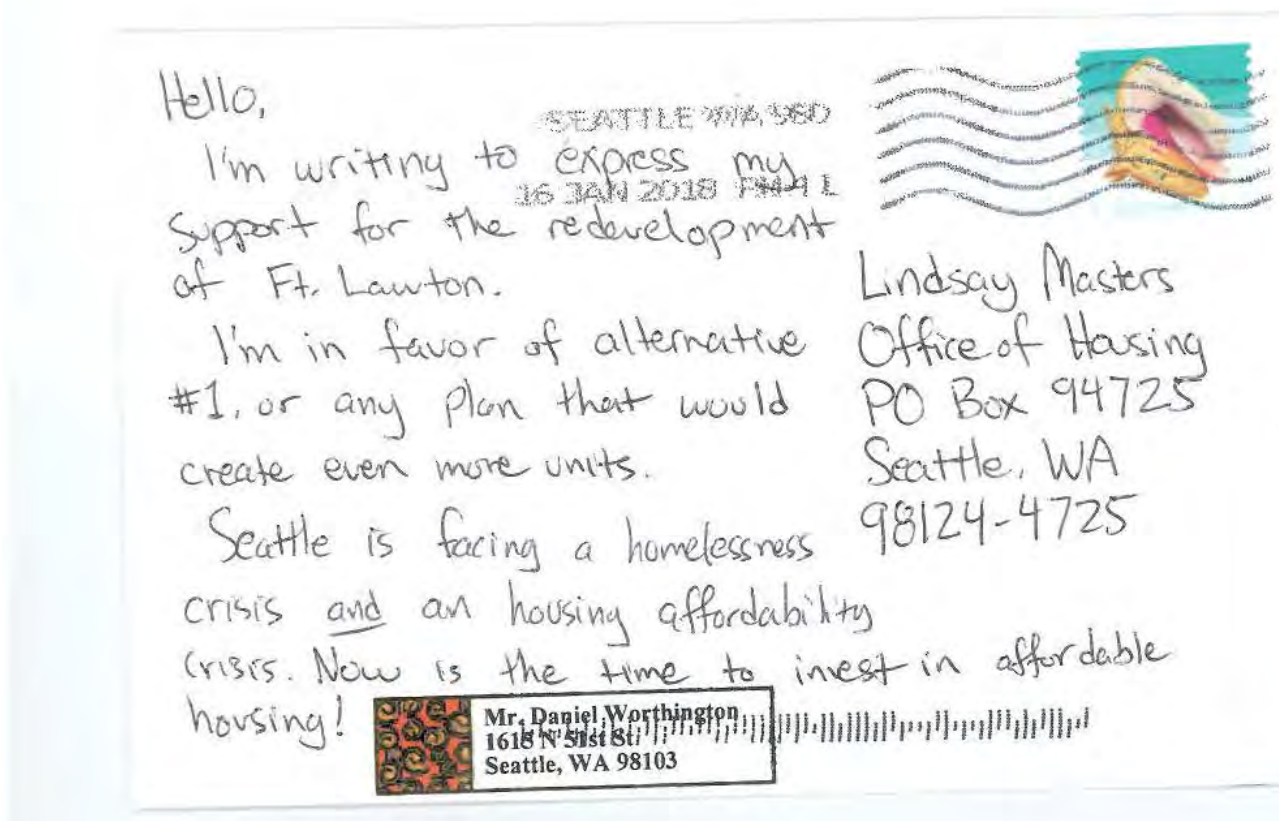 Hello,
SEATTLE WA 980
I'm writing to express my
16 JAN 2018 PM 4 L
support for the redevelopment
of Ft. Lawton.
I'm in favor of alternative
#1, or any plan that would
create even more units.
Seattle is facing a homelessness
crisis and an housing affordability
crisis. Now is the time to invest in affordable
housing!
Lindsay Masters
Office of Housing
PO Box 94725
Seattle, WA
98124-4725
Mr. Daniel Worthington
1618 N 51st St.
Seattle, WA 98103